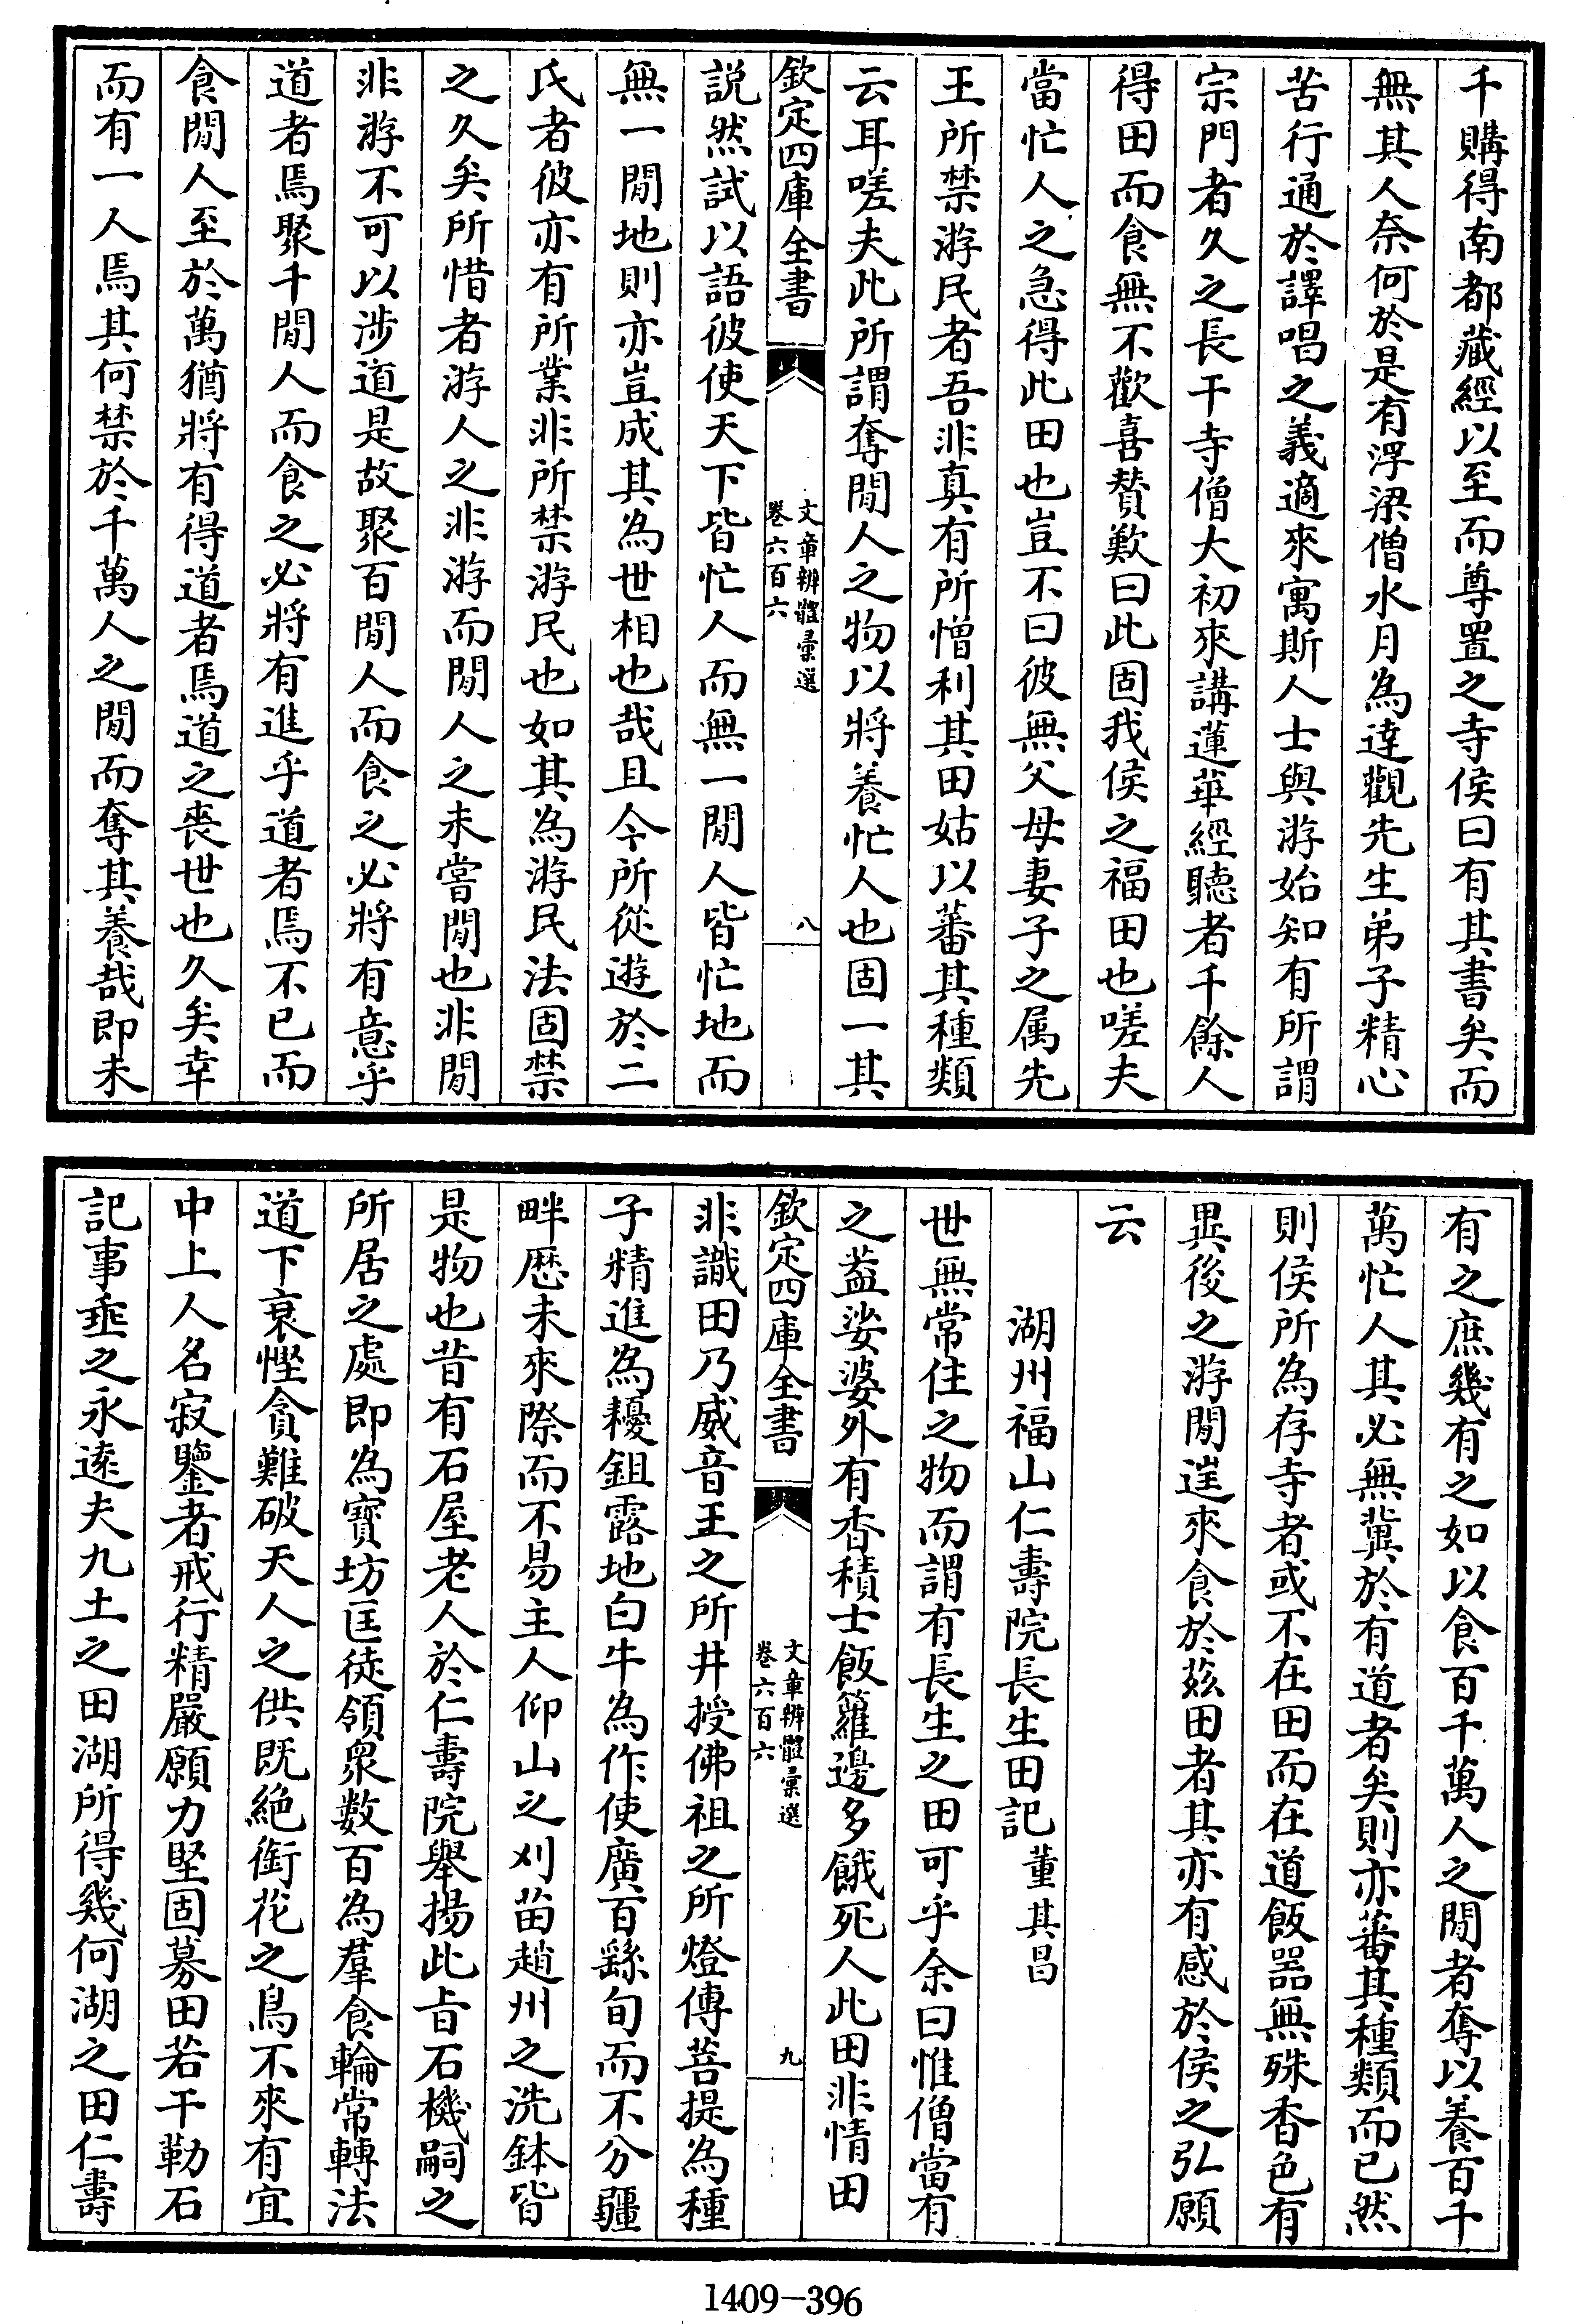 千購得南都藏經以至而尊置之寺侯曰有其書矣而
無其人奈何於是有浮梁僧水月為達觀先生弟子精心
苦行通於譯唱之義適來寓斯人士與游始知有所謂
宗門者久之長干寺僧大初來講蓮華經聽者千餘人
得田而食無不歡喜賛歎曰此固我侯之福田也嗟夫
當忙人之急得此田也豈不曰彼無父母妻子之属先
王所禁游民者吾非真有所憎利其田姑以蕃其種類
云耳嗟夫此所謂奪閒人之物以將養忙人也固一其
欽定四庫全書
文章辨體彙選
卷六百六
八
説然試以語彼使天下皆忙人而無一閒人皆忙地而
無一閒地則亦豈成其為世相也哉且今所從遊於二
氏者彼亦有所業非所禁游民也如其為游民法固禁
之久矣所惜者游人之非游而閒人之未嘗閒也非閒
非游不可以涉道是故聚百閒人而食之必將有意乎
道者焉聚千閒人而食之必將有進乎道者焉不已而
食閒人至於萬猶將有得道者焉道之喪世也久矣幸
而有一人焉其何禁於千萬人之閒而奪其養哉即未
有之庶幾有之如以食百千萬人之閒者奪以養百千
萬忙人其必無冀於有道者矣則亦蕃其種類而已然
則侯所為存寺者或不在田而在道飯器無殊香色有
異後之游閒遑來食於茲田者其亦有感於侯之弘願
云
湖州福山仁壽院長生田記 董其昌
世無常住之物而謂有長生之田可乎余曰惟僧當有
之葢娑婆外有香積士飯籮邊多餓死人此田非情田
欽定四庫全書
文章辨體彙選
卷六百六
九
非識田乃威音王之所井授佛祖之所燈傳菩提為種
子精進為耰鉏露地白牛為作使廣百繇旬而不分疆
畔歴未來際而不易主人仰山之刈苗趙州之洗鉢皆
是物也昔有石屋老人於仁壽院舉揚此㫖石機嗣之
所居之處即為寶坊匡徒領衆数百為羣食輪常轉法
道下衰慳貪難破天人之供既絶銜花之鳥不來有宜
中上人名寂鑒者戒行精嚴願力堅固募田若干勒石
記事垂之永逺夫九土之田湖所得幾何湖之田仁壽
1409-396